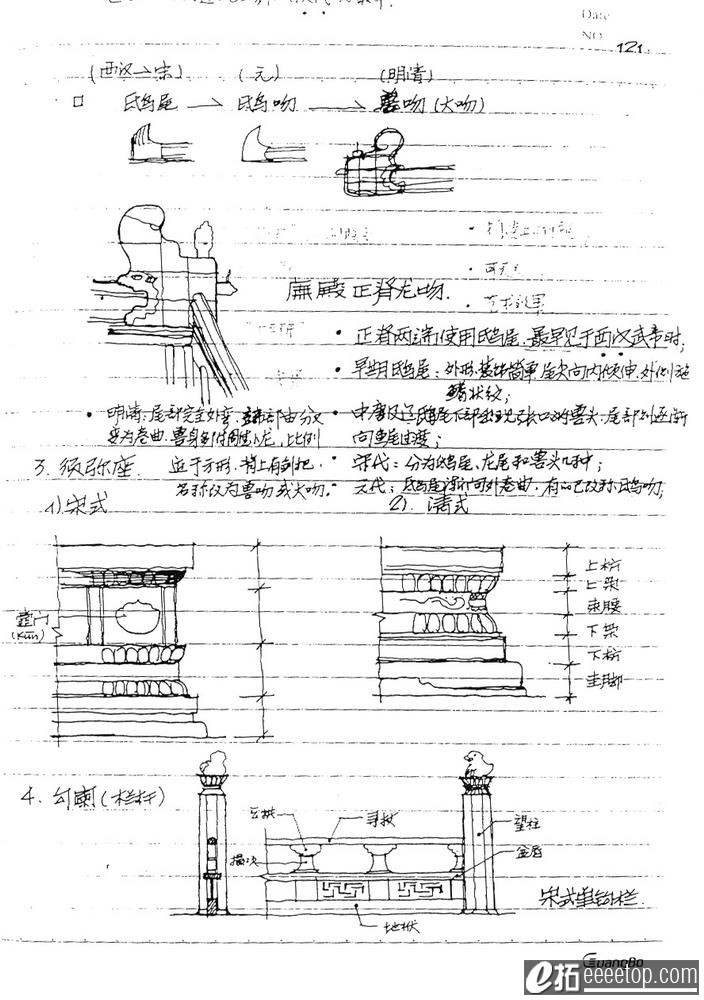 Date
NO 121.
(西汉→宋) (元) (明清)
□ 鸱尾 → 鸱吻 → 兽吻(大吻)
庑殿正脊龙吻.
• 正脊两端使用鸱尾.最早见于西汉武帝时;
• 早期鸱尾:外形装饰简单尾尖向内倾伸,外侧施
鳍状纹;
• 中唐及辽鸱尾下部出现张口的兽头,尾部则逐渐
向鱼尾过渡;
• 宋代:分为鸱尾、龙尾和兽头几种;
• 元代:鸱尾渐向外卷曲,有的已改称鸱吻;
• 明清:尾部完全外弯,端部由分叉
变为卷曲.兽身多附雕小龙,比例
近于方形.背上有剑把,
名称改为兽吻或大吻.
3. 须弥座
1)宋式
2). 清式
壸门
(Kǔn)
上枋
上枭
束腰
下枭
下枋
圭脚
4. 勾阑(栏杆)
云拱
寻杖
望柱
撮项
盆唇
地栿
宋式单钩栏.
GuangBo
e拓 eeeetop.com